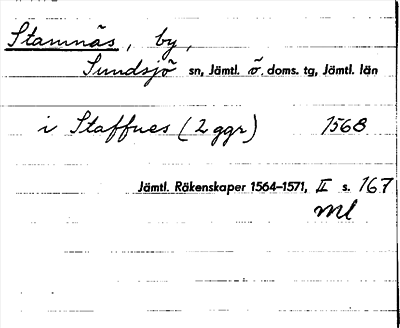 Stamnäs, by,
Sundsjö sn, Jämtl. ö. doms. tg, Jämtl. län
i Staffnes (2 ggr) 1568
Jämtl. Räkenskaper 1564–1571, II s. 167
ml